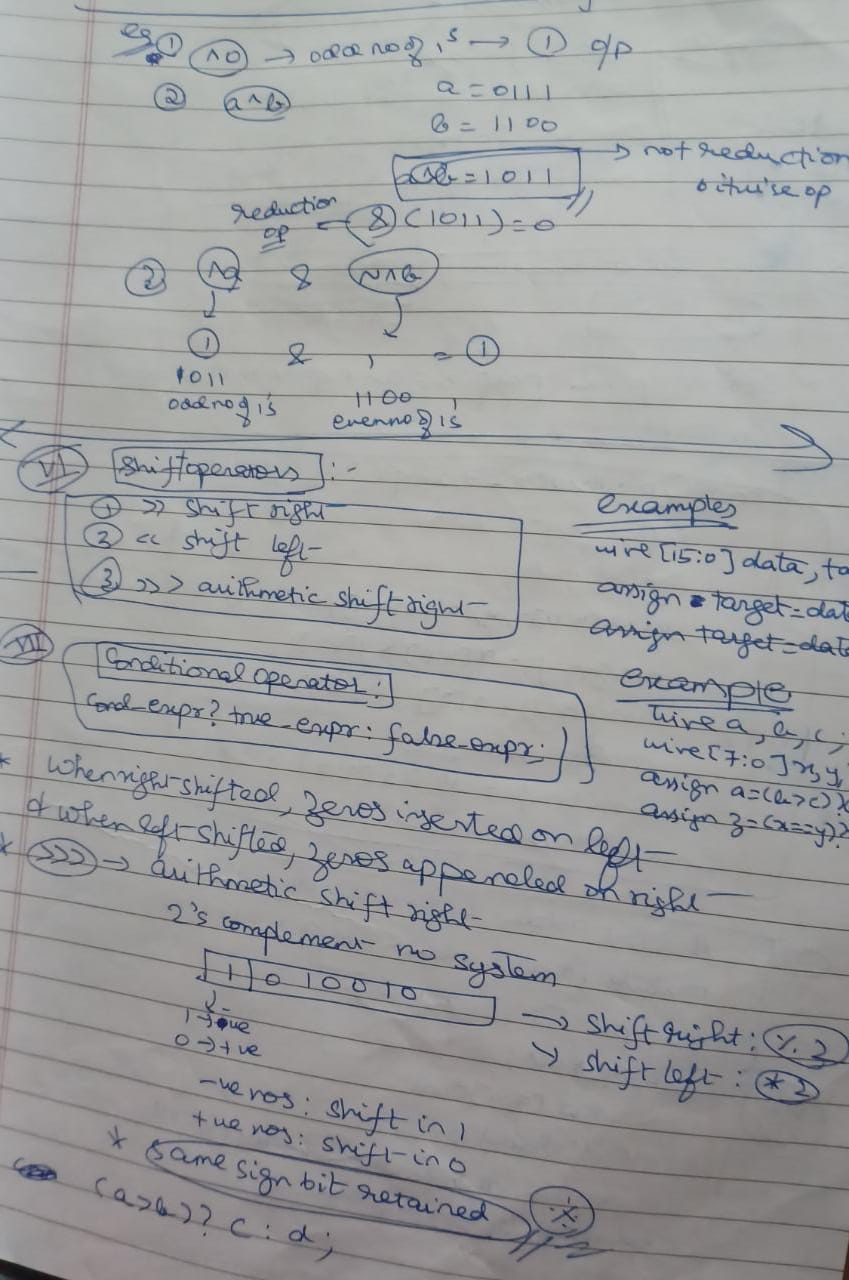 eg ① ^a → odd no of 1's → ① o/p
② a^b
a = 0111
b = 1100
a^b = 1011 → not reduction
bitwise op
reduction
op ← & (1011) = 0
③ ^a & ~^b
① & 1 = ①
1011 1100
odd no of 1's even no of 1's
VI Shift operators :-
① >> shift right
② << shift left
③ >>> arithmetic shift right
examples
wire [15:0] data, ta
assign target = dat
assign target = data
VII Conditional operator :
cond_expr? true_expr : false_expr;
example
wire a, b, c;
wire [7:0] x, y,
assign a = (b>c)?
assign z = (x==y)?
* When right shifted, zeros inserted on left
& when left shifted, zeros appended on right
* >>> → arithmetic shift right
2's complement no system
1 0 1 0 0 1 0
1 → -ve
0 → +ve
→ shift right : % 2
↘ shift left : * 2
-ve nos : shift in 1
+ve nos : shift in 0
* same sign bit retained *
(a>b)? c : d;